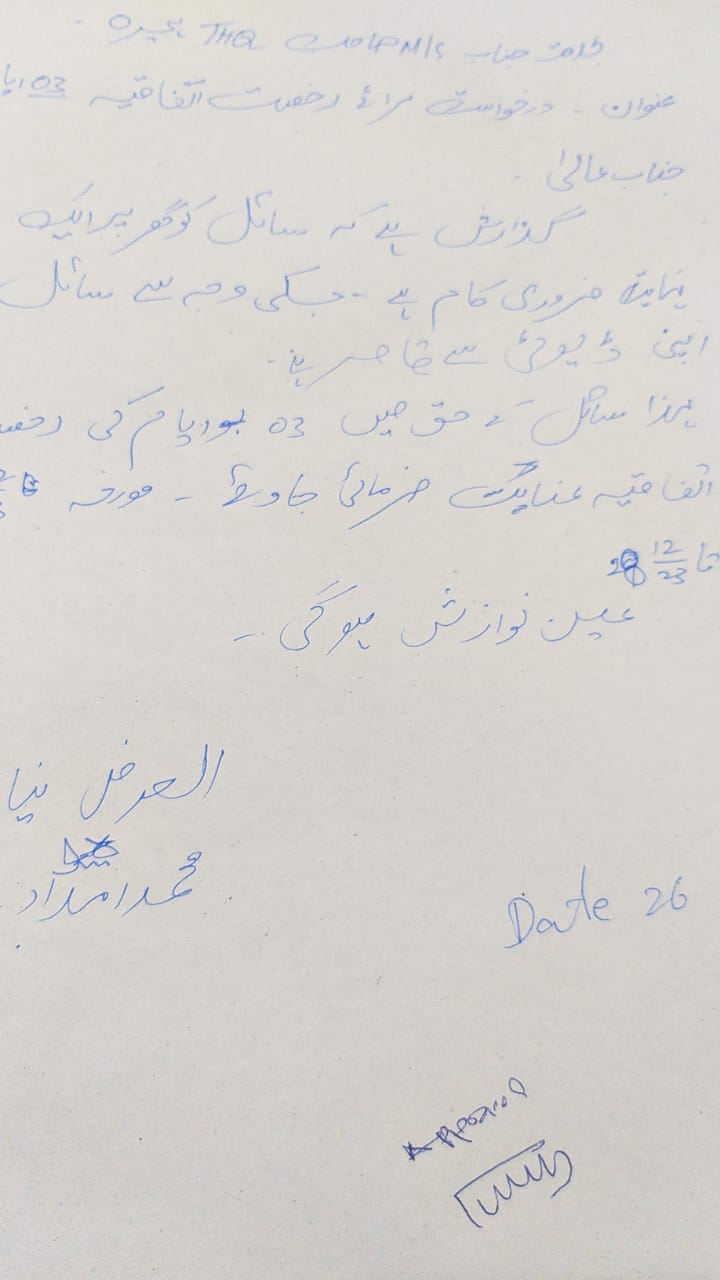 بخدمت جناب M/S صاحب THQ ہجیرہ ۔
عنوان ۔ درخواست برائے رخصت اتفاقیہ 03
جناب عالیٰ ۔
گذارش ہے کہ سائل کو گھر پر ایک
نہایت ضروری کام ہے ۔ جسکی وجہ سے سائل
اپنی ڈیوٹی سے قاصر ہے ۔
لہذا سائل کے حق میں 03 یوم کی
اتفاقیہ عنایت فرمائی جاوے ۔ مورخہ
تا 28 12/23
عین نوازش ہوگی ۔
العرض
محمد امداد
Date 26
Approved